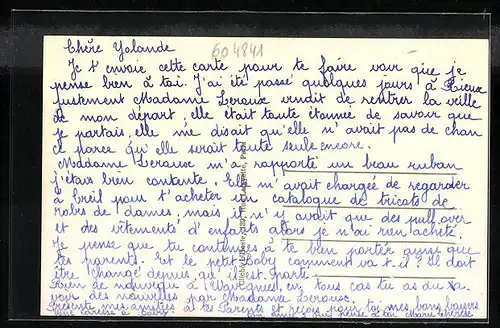 604841
Chère Yolande
Je t'envoie cette carte pour te faire voir que je
pense bien à toi. J'ai été passé quelques jours à Rieux
justement Madame Leroux vendit de rentrer la veille
de mon départ, elle était toute étonnée de savoir que
je partais, elle me disait qu'elle n'avait pas de chan
ce parce qu'elle serait toute seule encore.
Madame Lerousc m'a rapporté un beau ruban
j'étais bien contente, Elle m'avait chargée de regarder
à Creil pour t'acheter un catalogue de tricots de
robes de dames, mais il n'y avait que des pull over
et des vêtements d'enfants alors je n'ai rien acheté.
Je pense que tu continues à te bien porter ainsi que
tes parents. Et le petit Boby comment va-t-il? Il doit
être changé depuis qu'il est parti
Rien de nouveau à en tous cas tu as du
voir des nouvelles par Madame Lerousc.
Présente mes amitiés à tes Parents et reçois pour toi mes bons baisers
Une caresse à Boby Marie Thérèse